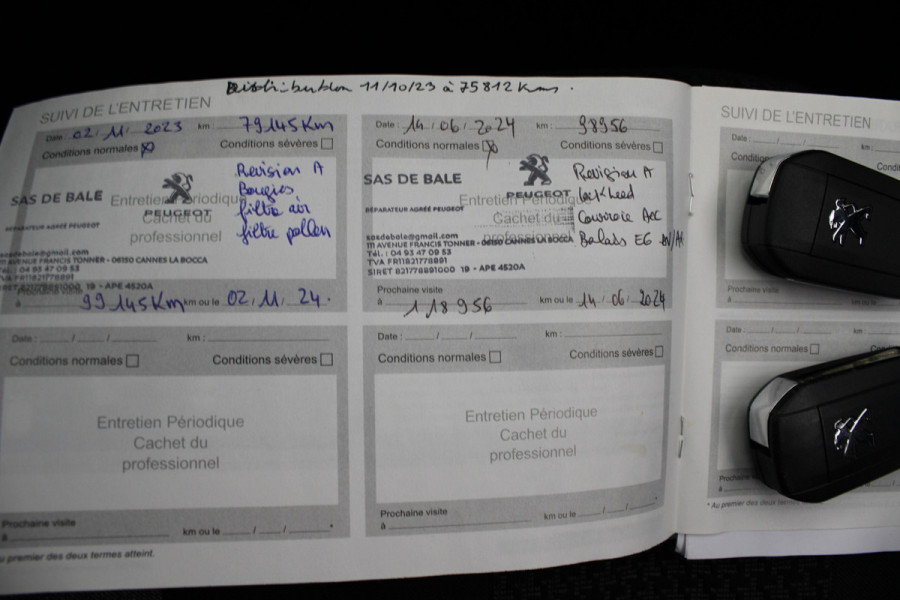 Distribution 11/10/23 à 75812 Kms.
SUIVI DE L'ENTRETIEN
Date : 02 / 11 / 2023 km : 79145 Km
Conditions normales Conditions sévères
SAS DE BALE
RÉPARATEUR AGRÉÉ PEUGEOT
PEUGEOT
Entretien Périodique
Cachet du
professionnel
Revision A
Bougies
filtre air
filtre pollen
sasdebale@gmail.com
111 AVENUE FRANCIS TONNER - 06150 CANNES LA BOCCA
Tél. : 04 93 47 09 53
TVA FR11821778891
SIRET 82177889100019 - APE 4520A
Prochaine visite
à 99145 Km km ou le 02 / 11 / 24
Date : 14 / 06 / 2024 km : 98956
Conditions normales Conditions sévères
SAS DE BALE
RÉPARATEUR AGRÉÉ PEUGEOT
PEUGEOT
Entretien Périodique
Cachet du
professionnel
Revision A
lockheed
Courroie Acc
Balais EG AV/AR
sasdebale@gmail.com
111 AVENUE FRANCIS TONNER - 06150 CANNES LA BOCCA
Tél. : 04 93 47 09 53
TVA FR11821778891
SIRET 82177889100019 - APE 4520A
Prochaine visite
à 118956 km ou le 14 / 06 / 2024
Date : / / km :
Conditions normales Conditions sévères
Entretien Périodique
Cachet du
professionnel
Prochaine visite
à km ou le / / *
Date : / / km :
Conditions normales Conditions sévères
Entretien Périodique
Cachet du
professionnel
Prochaine visite
à km ou le / / *
au premier des deux termes atteint.
SUIVI DE L'ENTRETIEN
Date : / / km :
Prochaine visite
à
Date : / / km :
Conditions normales
à
* Au premier des deux